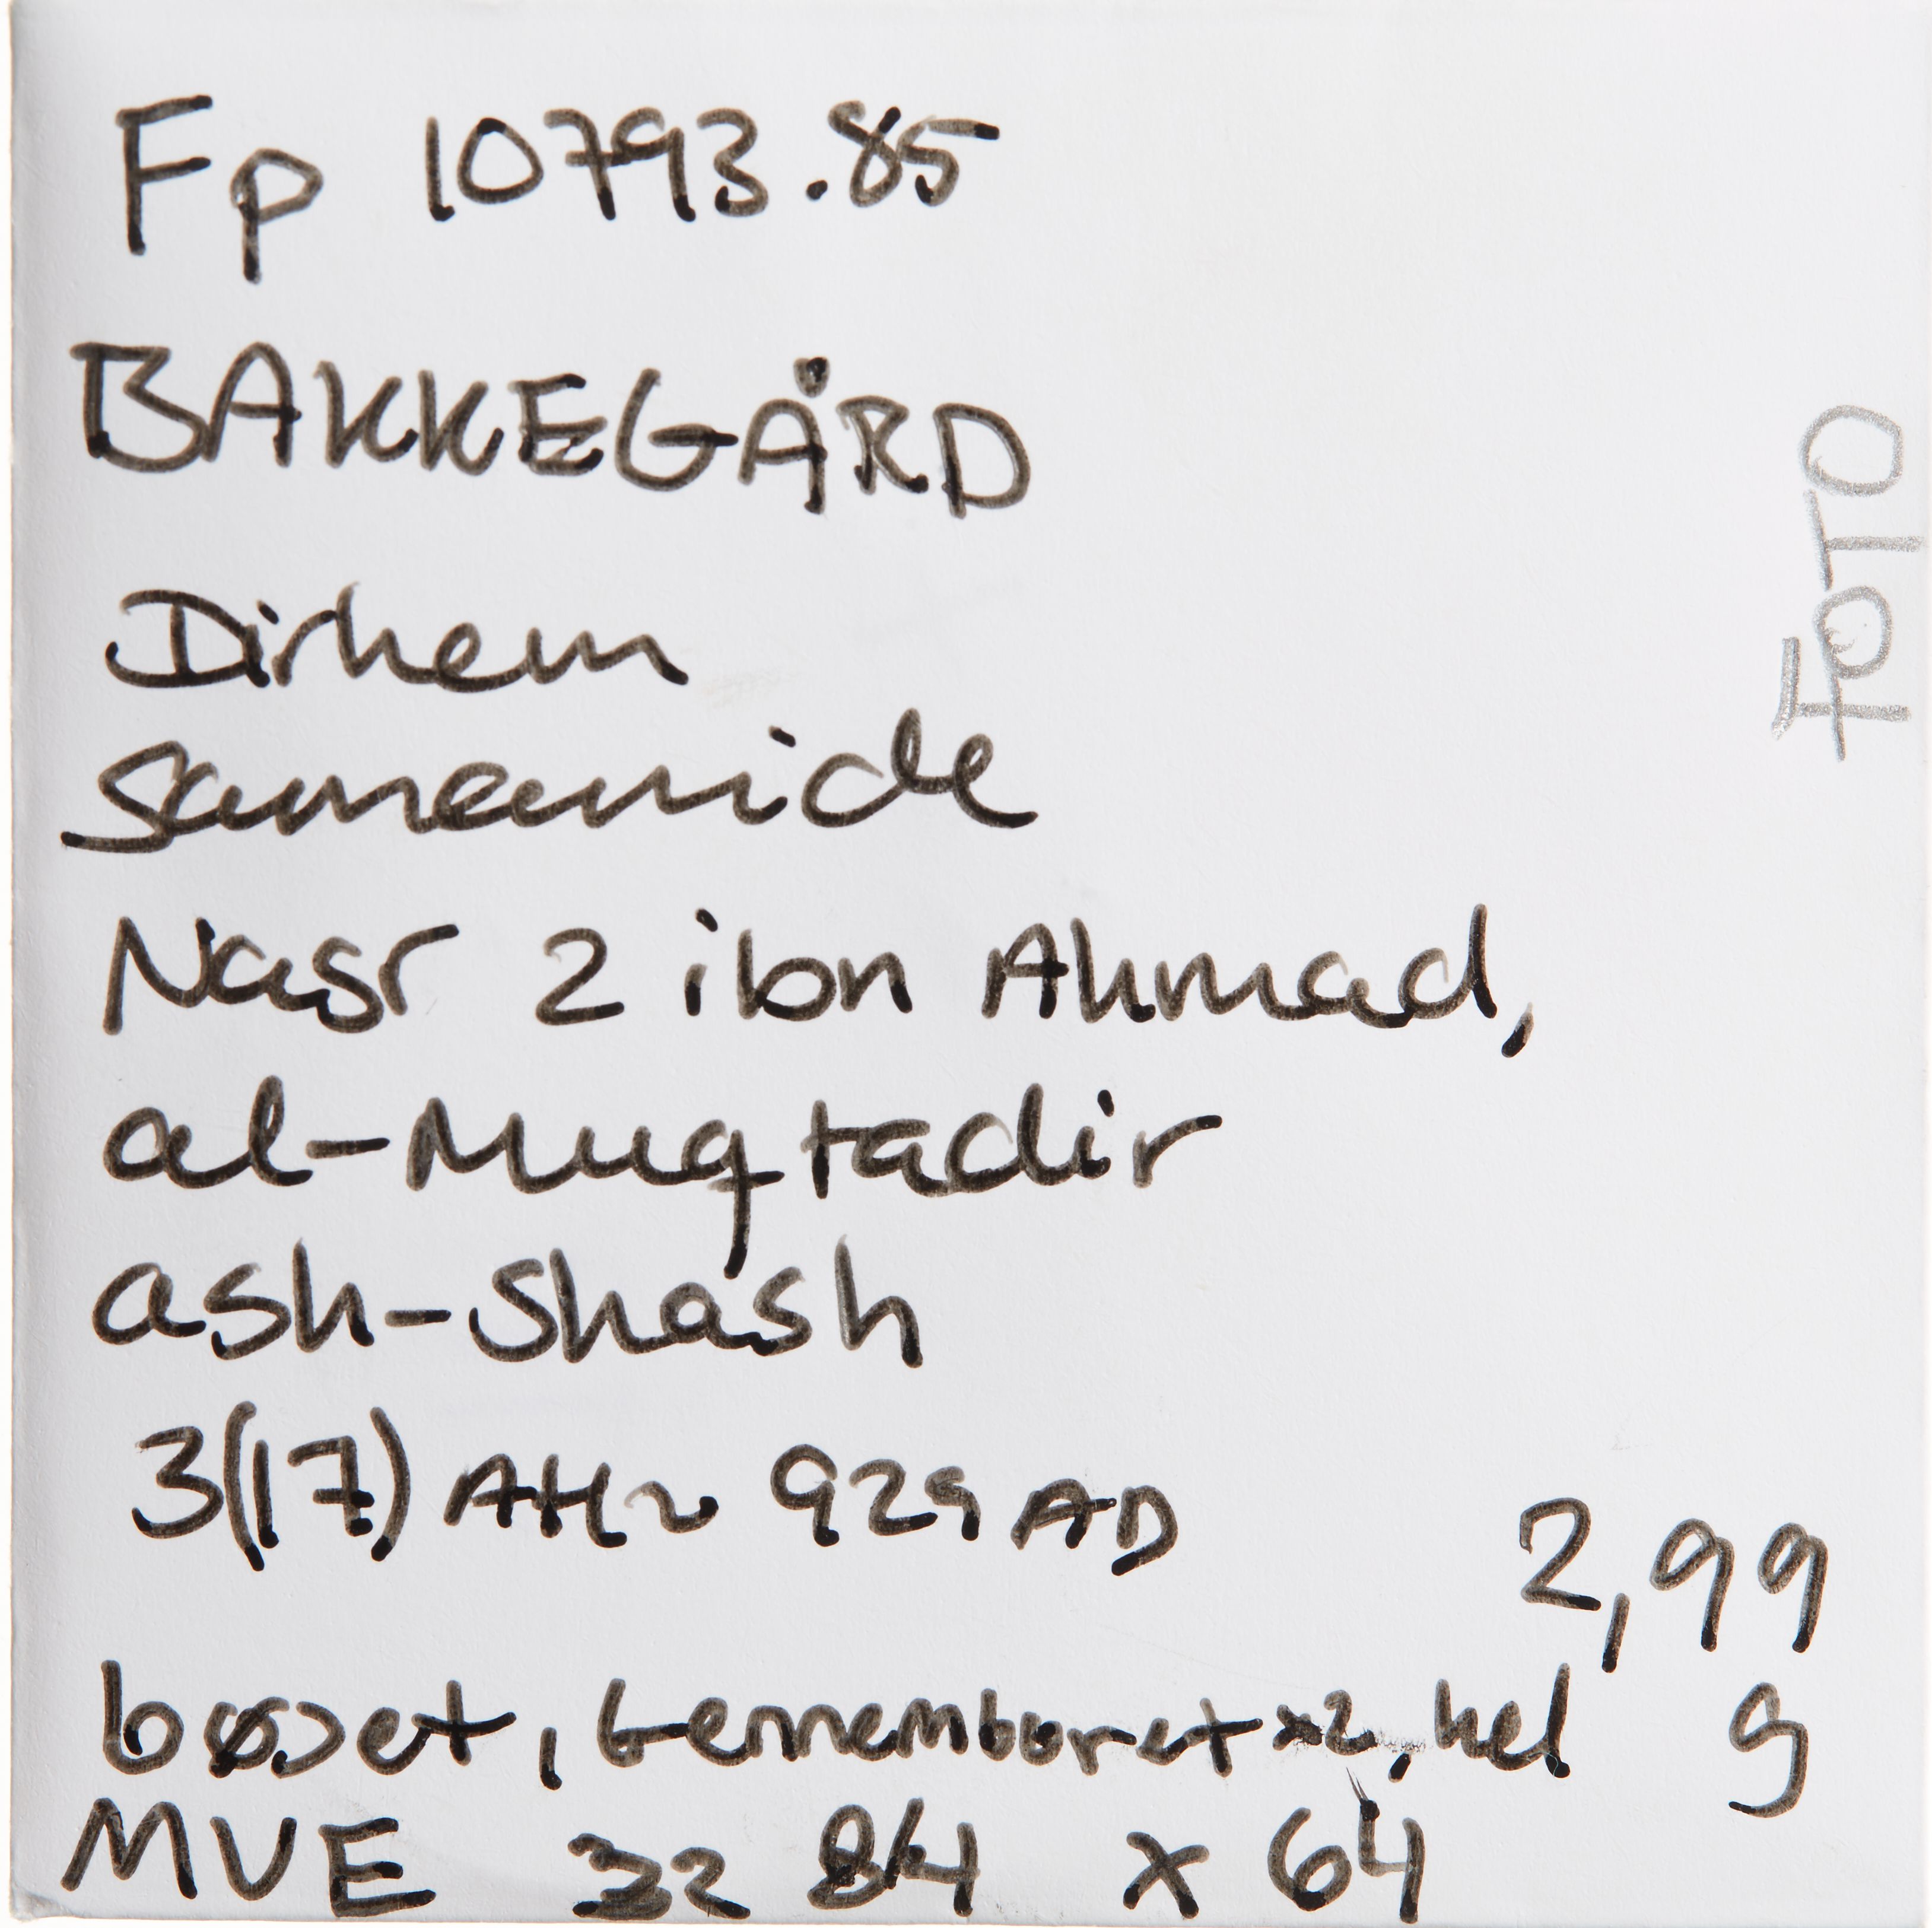 Fp 10793.85
BAKKEGÅRD
Dirhem
Samanide
Nasr 2 ibn Ahmad,
al-Muqtadir
ash-Shash
3(17) AH ~ 929 AD
2,99 g
bøjet, gennemboret x2, hel
MVE 32 84 x 64
FOTO